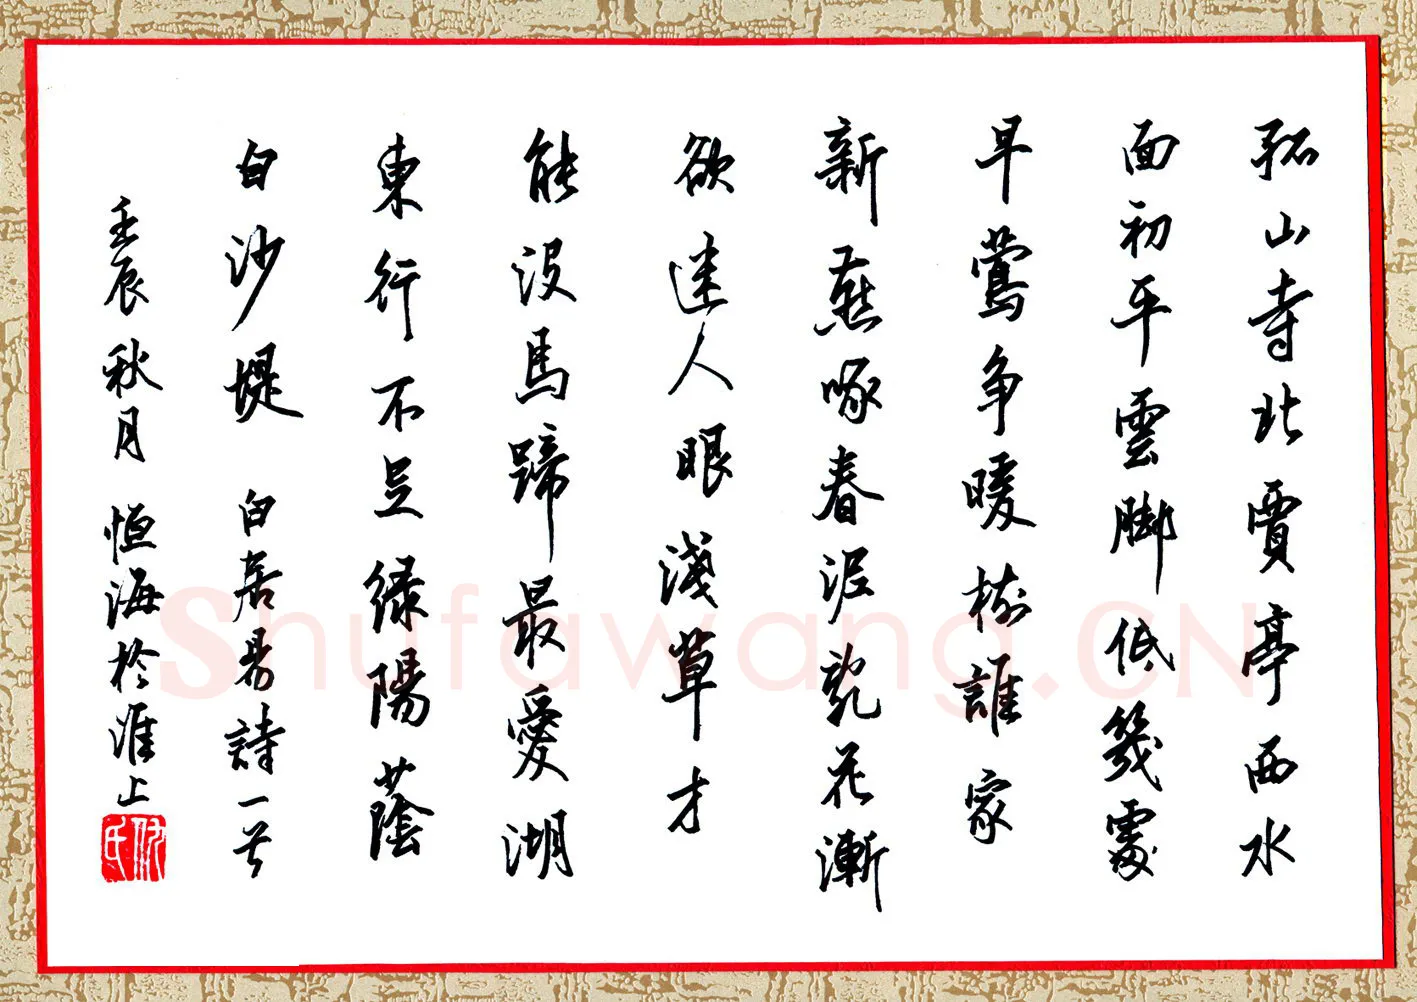 孤山寺北賈亭西水
面初平雲脚低幾處
早鶯争暖樹誰家
新燕啄春泥亂花漸
欲迷人眼淺草才
能没馬蹄最愛湖
東行不足緑陽蔭
白沙堤 白居易詩一首
壬辰秋月 恒海於淮上
Shufawang.CN